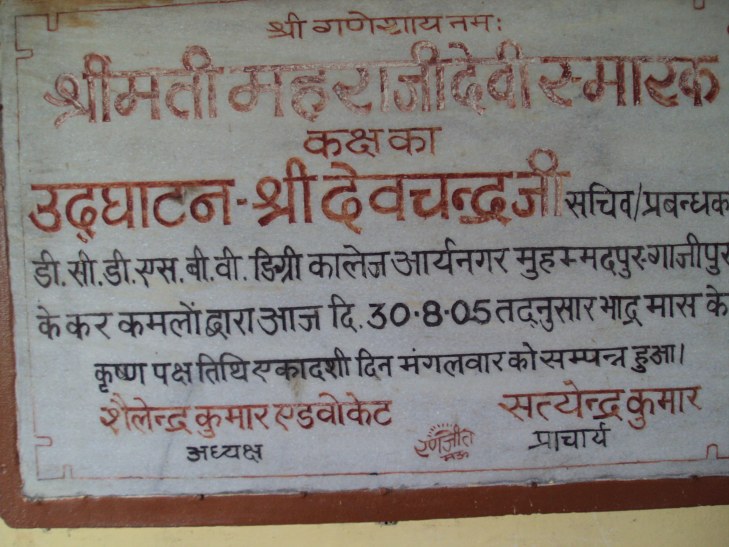 श्री गणेशाय नम:
श्रीमती महराजी देवी स्मारक
कक्ष का
उद्घाटन-श्री देवचन्द्रजी सचिव/प्रबन्धक
डी.सी.डी.एस.बी.वी. डिग्री कालेज आर्यनगर मुहम्मदपुर-गाजीपुर
के कर कमलों द्वारा आज दि. 30·8·05 तद्नुसार भाद्र मास के
कृष्ण पक्ष तिथि एकादशी दिन मंगलवार को सम्पन्न हुआ।
शैलेन्द्र कुमार एडवोकेट सत्येन्द्र कुमार
अध्यक्ष प्राचार्य
रणजीत
मऊ